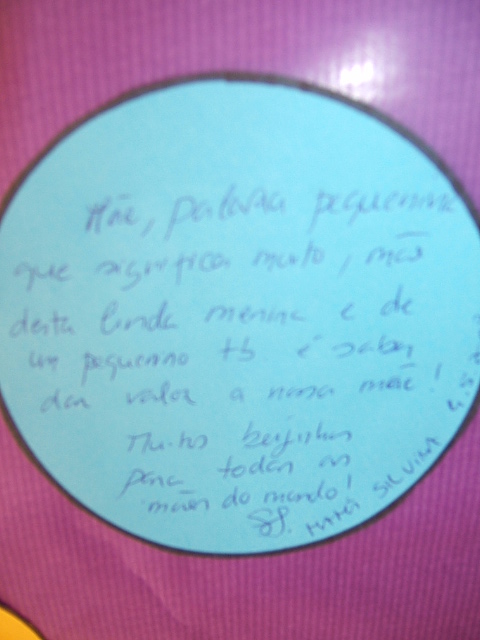 Mãe, palavra pequenina
que significa muito, mãe
desta linda menina e de
um pequenino tb é saber
dar valor a nossa mãe!
Muitos beijinhos
para todas as
mães do mundo!
SS. MAMÃ SILVINA